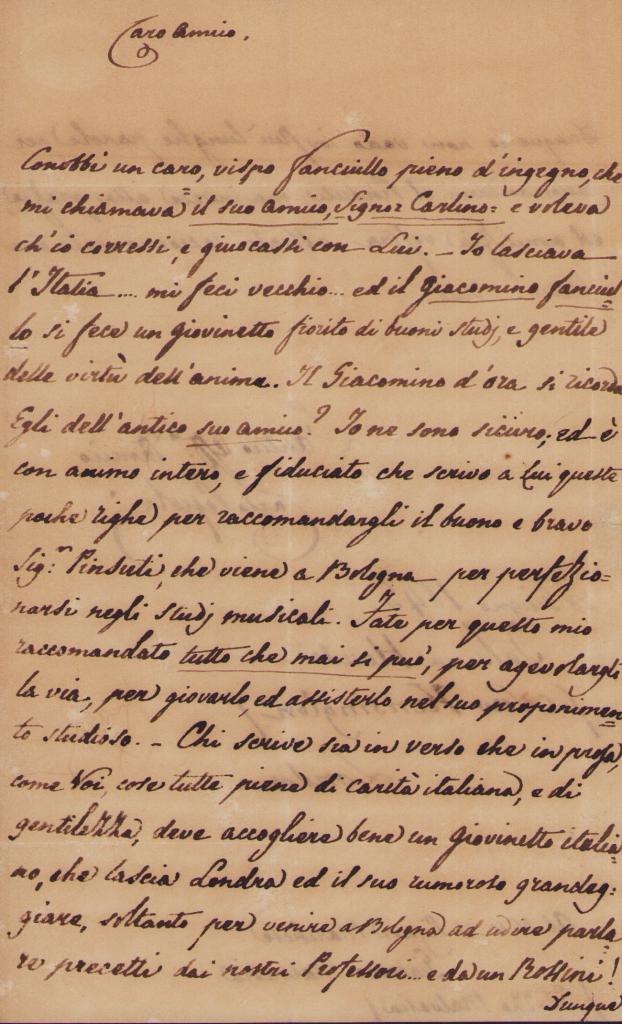 Caro Amico.
Conobbi un caro, vispo fanciullo pieno d'ingegno, che
mi chiamava = il suo amico, Signor Carlino = e voleva
ch'io corressi, e giuocassi con Lui. – Io lasciava
l'Italia .... mi feci vecchio... ed il Giacomino fanciul=
lo si fece un giovinetto fiorito di buoni studj, e gentile
delle virtù dell'anima. Il Giacomino d'ora si ricorda
Egli dell'antico suo amico? Io ne sono sicuro; ed è
con animo intero, e fiduciato che scrivo a Lui queste
poche righe per raccomandargli il buono e bravo
Sig.r Pinsuti, che viene a Bologna per perfezio=
narsi negli studj musicali. Fate per questo mio
raccomandato tutto che mai si può, per agevolargli
la via, per giovarlo, ed assisterlo nel suo proponimen=
to studioso. – Chi scrive sia in verso che in prosa,
come Voi, cose tutte piene di carità italiana, e di
gentilezza, deve accogliere bene un giovinetto italia=
no, che lascia Londra ed il suo rumoroso grandeg=
giare, soltanto per venire a Bologna ad udire parla=
re precetti dai nostri Professori... e da un Rossini!
Dunque